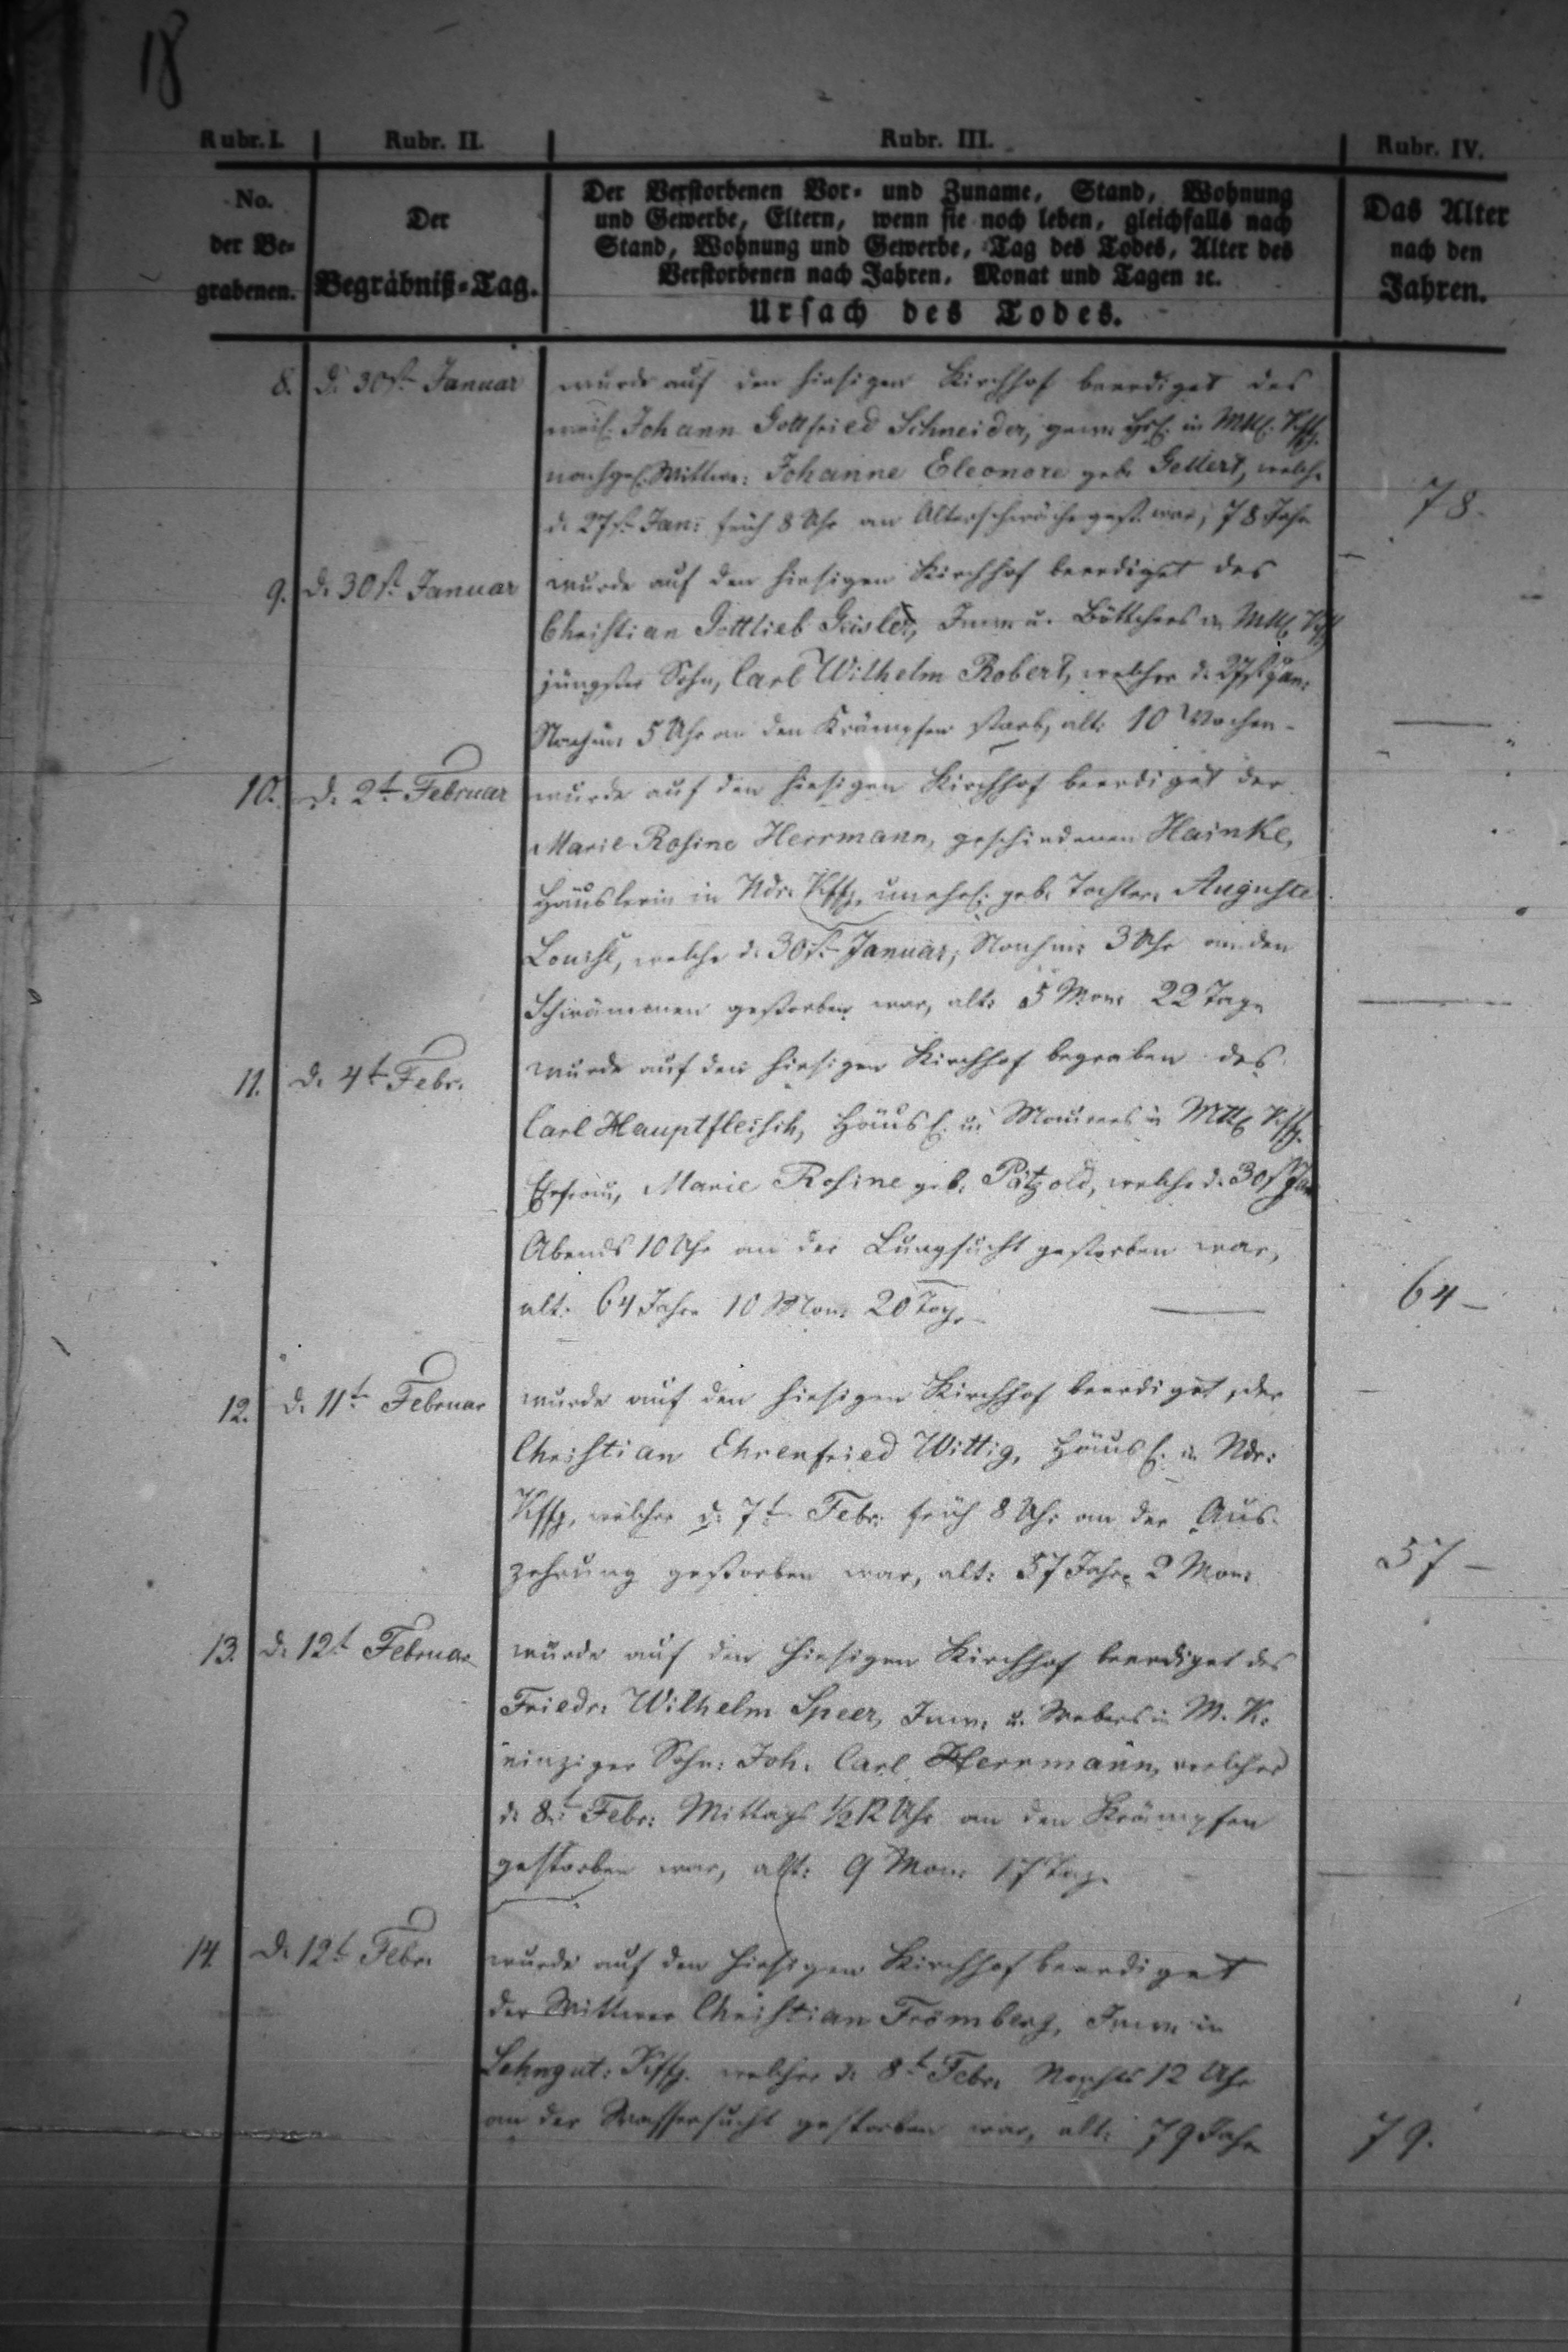 18
Rubr. I. Rubr. II. Rubr. III. Rubr. IV.
No. der Be- grabenen.
Der Begräbniß-Tag.
Der Verstorbenen Vor- und Zuname, Stand, Wohnung
und Gewerbe, Eltern, wenn sie noch leben, gleichfalls nach
Stand, Wohnung und Gewerbe, Tag des Todes, Alter des
Verstorbenen nach Jahren, Monat und Tagen ꝛc.
Ursach des Todes.
Das Alter nach den Jahren.
8. d. 30st. Januar wurde auf den hiesigen Kirchhof beerdiget des
weil. Johann Gottfried Schneider, gew. in Mttl. Kffg.
nachgel. Wittwe: Johanne Eleonore geb. Gellert, welche
d. 27st. Jan: früh 8 Uhr an Altersschwäche gest. war; 78 Jahr 78.
9. d. 30st. Januar wurde auf den hiesigen Kirchhof beerdiget des
Christian Gottlieb Geisler, Inw. u. Böttchers in Mttl. Kffg.
jüngster Sohn, Carl Wilhelm Robert, welcher d. 27st. Jan:
Nachm: 5 Uhr an den Krämpfen starb, alt: 10 Wochen -
10. d. 2t. Februar wurde auf den hiesigen Kirchhof beerdiget der
Marie Rosine Herrmann, geschiedenen Hainke,
Häuslerin in Ndr. Kffg. unehel. geb. Tochter, Auguste
Louise, welche d. 30st. Januar, Nachm: 3 Uhr an den
gestorben war, alt: 5 Mon: 22 Tage
11. d. 4t. Febr. wurde auf den hiesigen Kirchhof begraben des
Carl Hauptfleisch, Häusl. u. Maurers in Mttl. Kffg.
Ehefrau, Marie Rosine geb. Pätzold, welche d. 30st. Jan
Abends 10 Uhr an der Lungsucht gestorben war,
alt: 64 Jahre 10 Mon: 20 Tage 64 -
12. d. 11t. Februar wurde auf den hiesigen Kirchhof beerdiget, der
Christian Ehrenfried Wittig, Häusl. in Ndr:
Kffg, welcher d. 7t. Febr: früh 8 Uhr an der Aus-
zehrung gestorben war, alt: 57 Jahre 2 Mon: 57 -
13. d. 12t Februar wurde auf den hiesigen Kirchhof beerdiget des
Friedr: Wilhelm Speer, Inw. u. Webers in M. K.
einziger Sohn: Joh. Carl Herrmann, welcher
d. 8t. Febr: Mittags ½12 Uhr an den Krämpfen
gestorben war, alt: 9 Mon: 17 Tage
14. d. 12t. Febr. wurde auf den hiesigen Kirchhof beerdiget
der Wittwer Christian Fromberg, Inw. in
Lehngut: Kffg. welcher d. 8t. Febr. Nachts 12 Uhr
an der Wassersucht gestorben war, alt: 79 Jahr 79.